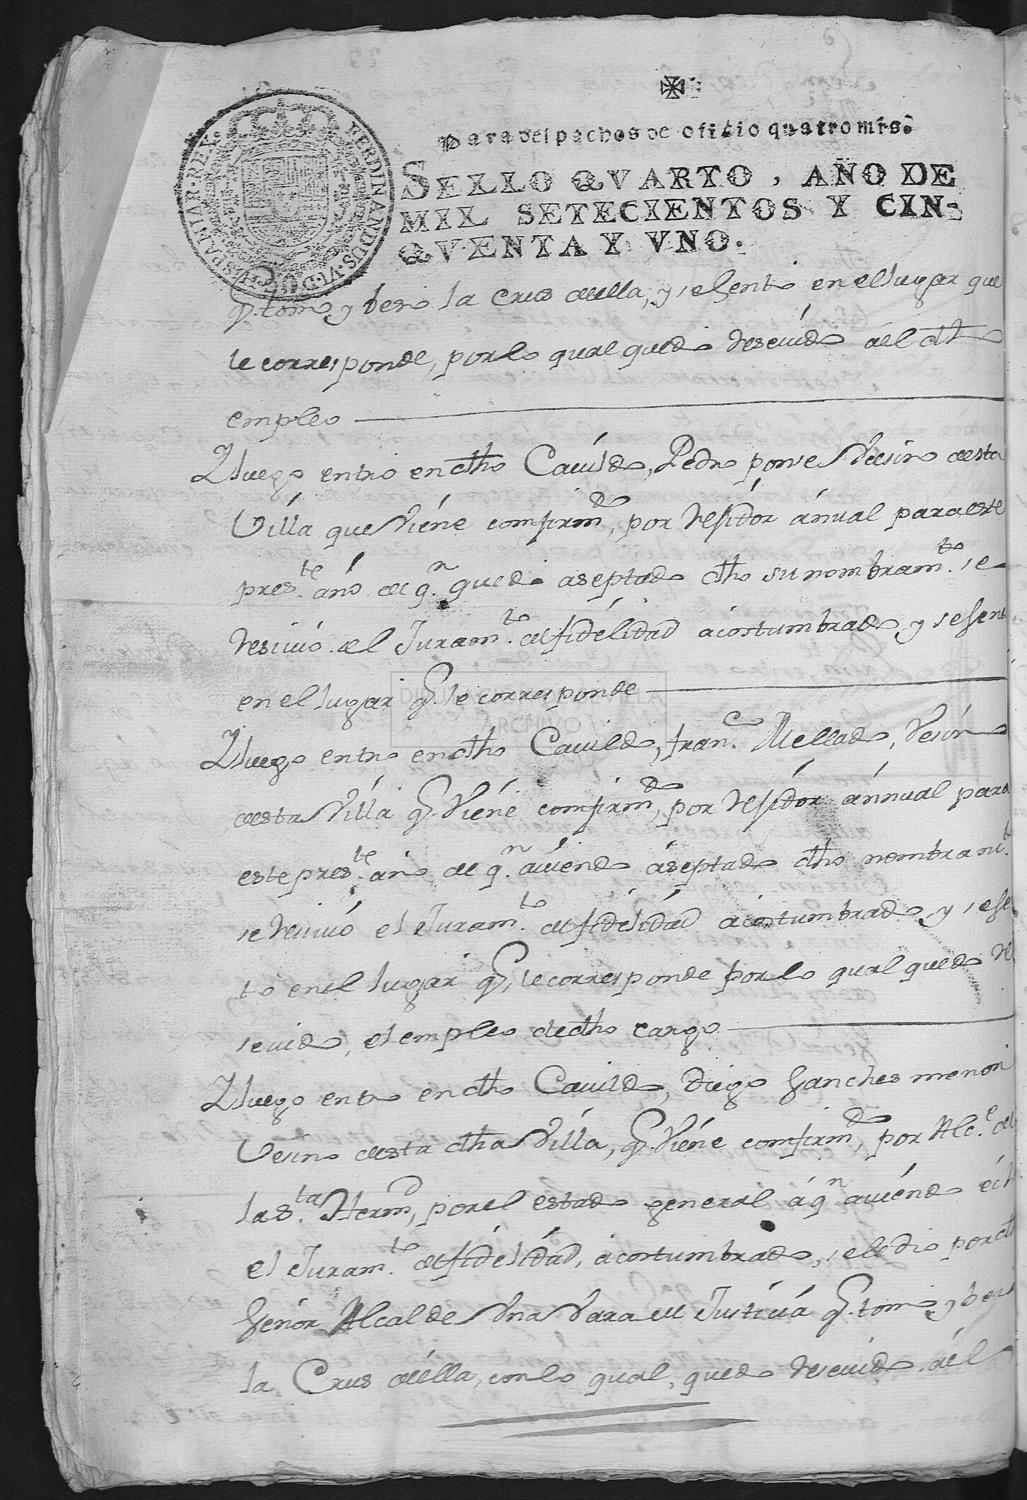 FERDINANDUS.VI.D.G. HISPANIAR.REX.
Para despachos de oficio quatro mrs.
SELLO QVARTO, AÑO DE
MIL SETECIENTOS Y CIN-
QVENTA Y VNO.
q. tomo y beso la Crus de ella, y se sento en el lugar que
le corresponde, por lo qual quedo resevido a el dho
empleo
Y luego entro en dho Cavildo, Pedro Ponse Vecino desta
Villa que viene comfirmdo, por residor ánual para este
preste. año de qn. quedo aseptado dho su nombramto. se
resivió el Juramto. de fidelidad acostumbrado, y se sento
en el lugar q. le corresponde
Y luego entro en dho Cavildo, Franco. Mellado, Vesino
desta Villa q. viéne comfirmdo, por residor ánnual para
este preste. año de qn. aviendo áseptado dho nombramto.
se resivió el Juramto. de fidelidad acostumbrado, y se sen
to en el lugar q. le corresponde por lo qual quedo re
sevido, el empleo de dho cargo
Y luego entro en dho Cavildo, Diego Sanches menor
Vesino desta dha Villa, q. viéne comfirmdo, por Alce. de
la Sta. Hermd, por el estado general á qn aviendo écho
el Juramto. de fidelidad, acostumbrado, se le dio por dho
Señor Alcalde Vna Vara de Justicia q. tomo y beso
la Crus de élla, con lo qual, quedo resevido a él
DIPUTACIÓN DE SEVILLA
ARCHIVO